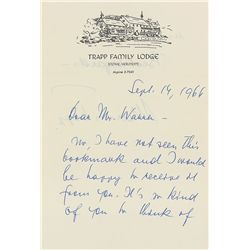 TRAPP FAMILY LODGE
STOWE, VERMONT
Sept. 14, 1966
Dear Mr.
no, I have not seen this
bookmark and I would
be happy to receive it
from you. It's so kind
of you to think of